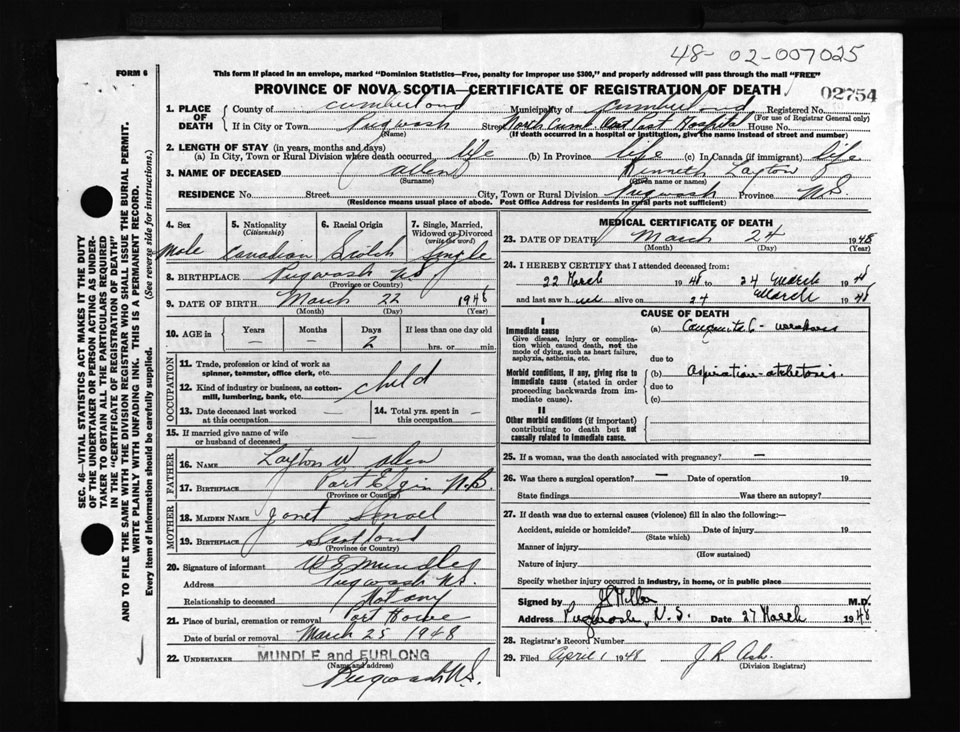 48-02-007025
FORM 6
This form if placed in an envelope, marked "Dominion Statistics—Free, penalty for improper use $300," and properly addressed will pass through the mail "FREE"
PROVINCE OF NOVA SCOTIA—CERTIFICATE OF REGISTRATION OF DEATH
02754
1. PLACE OF DEATH
County of Cumberland Municipality of Cumberland Registered No.
(For use of Registrar General only)
If in City or Town Pugwash Street North Cumb. House No.
(Name) (If death occurred in a hospital or institution, give the name instead of street and number)
2. LENGTH OF STAY (in years, months and days)
(a) In City, Town or Rural Division where death occurred life (b) In Province life (c) In Canada (if immigrant) life
3. NAME OF DECEASED Allen Kenneth Layton
(Surname) (Given name or names)
RESIDENCE No. Street City, Town or Rural Division Pugwash Province N.S.
(Residence means usual place of abode. Post Office Address for residents in rural parts not sufficient)
4. Sex Male
5. Nationality (Citizenship) Canadian
6. Racial Origin Scotch
7. Single, Married, Widowed or Divorced (write the word) Single
8. BIRTHPLACE Pugwash N.S.
(Province or Country)
9. DATE OF BIRTH March 22 1948
(Month) (Day) (Year)
10. AGE in Years — Months — Days 2 If less than one day old
hrs. or min.
OCCUPATION
11. Trade, profession or kind of work as spinner, teamster, office clerk, etc.
12. Kind of industry or business, as cotton-mill, lumbering, bank, etc. child
13. Date deceased last worked at this occupation — 14. Total yrs. spent in this occupation —
15. If married give name of wife or husband of deceased —
FATHER
16. NAME Layton W Allen
17. BIRTHPLACE Port Elgin N.B.
(Province or Country)
MOTHER
18. MAIDEN NAME Janet
19. BIRTHPLACE Scotland
(Province or Country)
20. Signature of informant Mundle
Address Pugwash N.S.
Relationship to deceased Not any
21. Place of burial, cremation or removal Port Howe
Date of burial or removal March 25 1948
22. UNDERTAKER MUNDLE and FURLONG
(Name and address)
Pugwash N.S.
MEDICAL CERTIFICATE OF DEATH
23. DATE OF DEATH March 24 1948
(Month) (Day) (Year)
24. I HEREBY CERTIFY that I attended deceased from:
22 March 1948 to 24 March 1948
and last saw h alive on 24 March 1948
CAUSE OF DEATH
I
Immediate cause (a)
Give disease, injury or complication which caused death, not the mode of dying, such as heart failure, asphyxia, asthenia, etc.
due to
Morbid conditions, if any, giving rise to immediate cause (stated in order proceeding backwards from immediate cause). (b)
due to
(c)
II
Other morbid conditions (if important) contributing to death but not causally related to immediate cause.
25. If a woman, was the death associated with pregnancy? —
26. Was there a surgical operation? — Date of operation 19
State findings Was there an autopsy?
27. If death was due to external causes (violence) fill in also the following:—
Accident, suicide or homicide? Date of injury 19
(State which)
Manner of injury
(How sustained)
Nature of injury
Specify whether injury occurred in industry, in home, or in public place
Signed by M.D.
Address Pugwash, N.S. Date 27 March 1948
28. Registrar's Record Number
29. Filed April 1 1948 J. R. Ash
(Division Registrar)
SEC. 46—VITAL STATISTICS ACT MAKES IT THE DUTY
OF THE UNDERTAKER OR PERSON ACTING AS UNDER-
TAKER TO OBTAIN ALL THE PARTICULARS REQUIRED
IN THE "CERTIFICATE OF REGISTRATION OF DEATH"
AND TO FILE THE SAME WITH THE DIVISION REGISTRAR WHO SHALL ISSUE THE BURIAL PERMIT.
WRITE PLAINLY WITH UNFADING INK. THIS IS A PERMANENT RECORD.
Every item of Information should be carefully supplied. (See reverse side for instructions.)